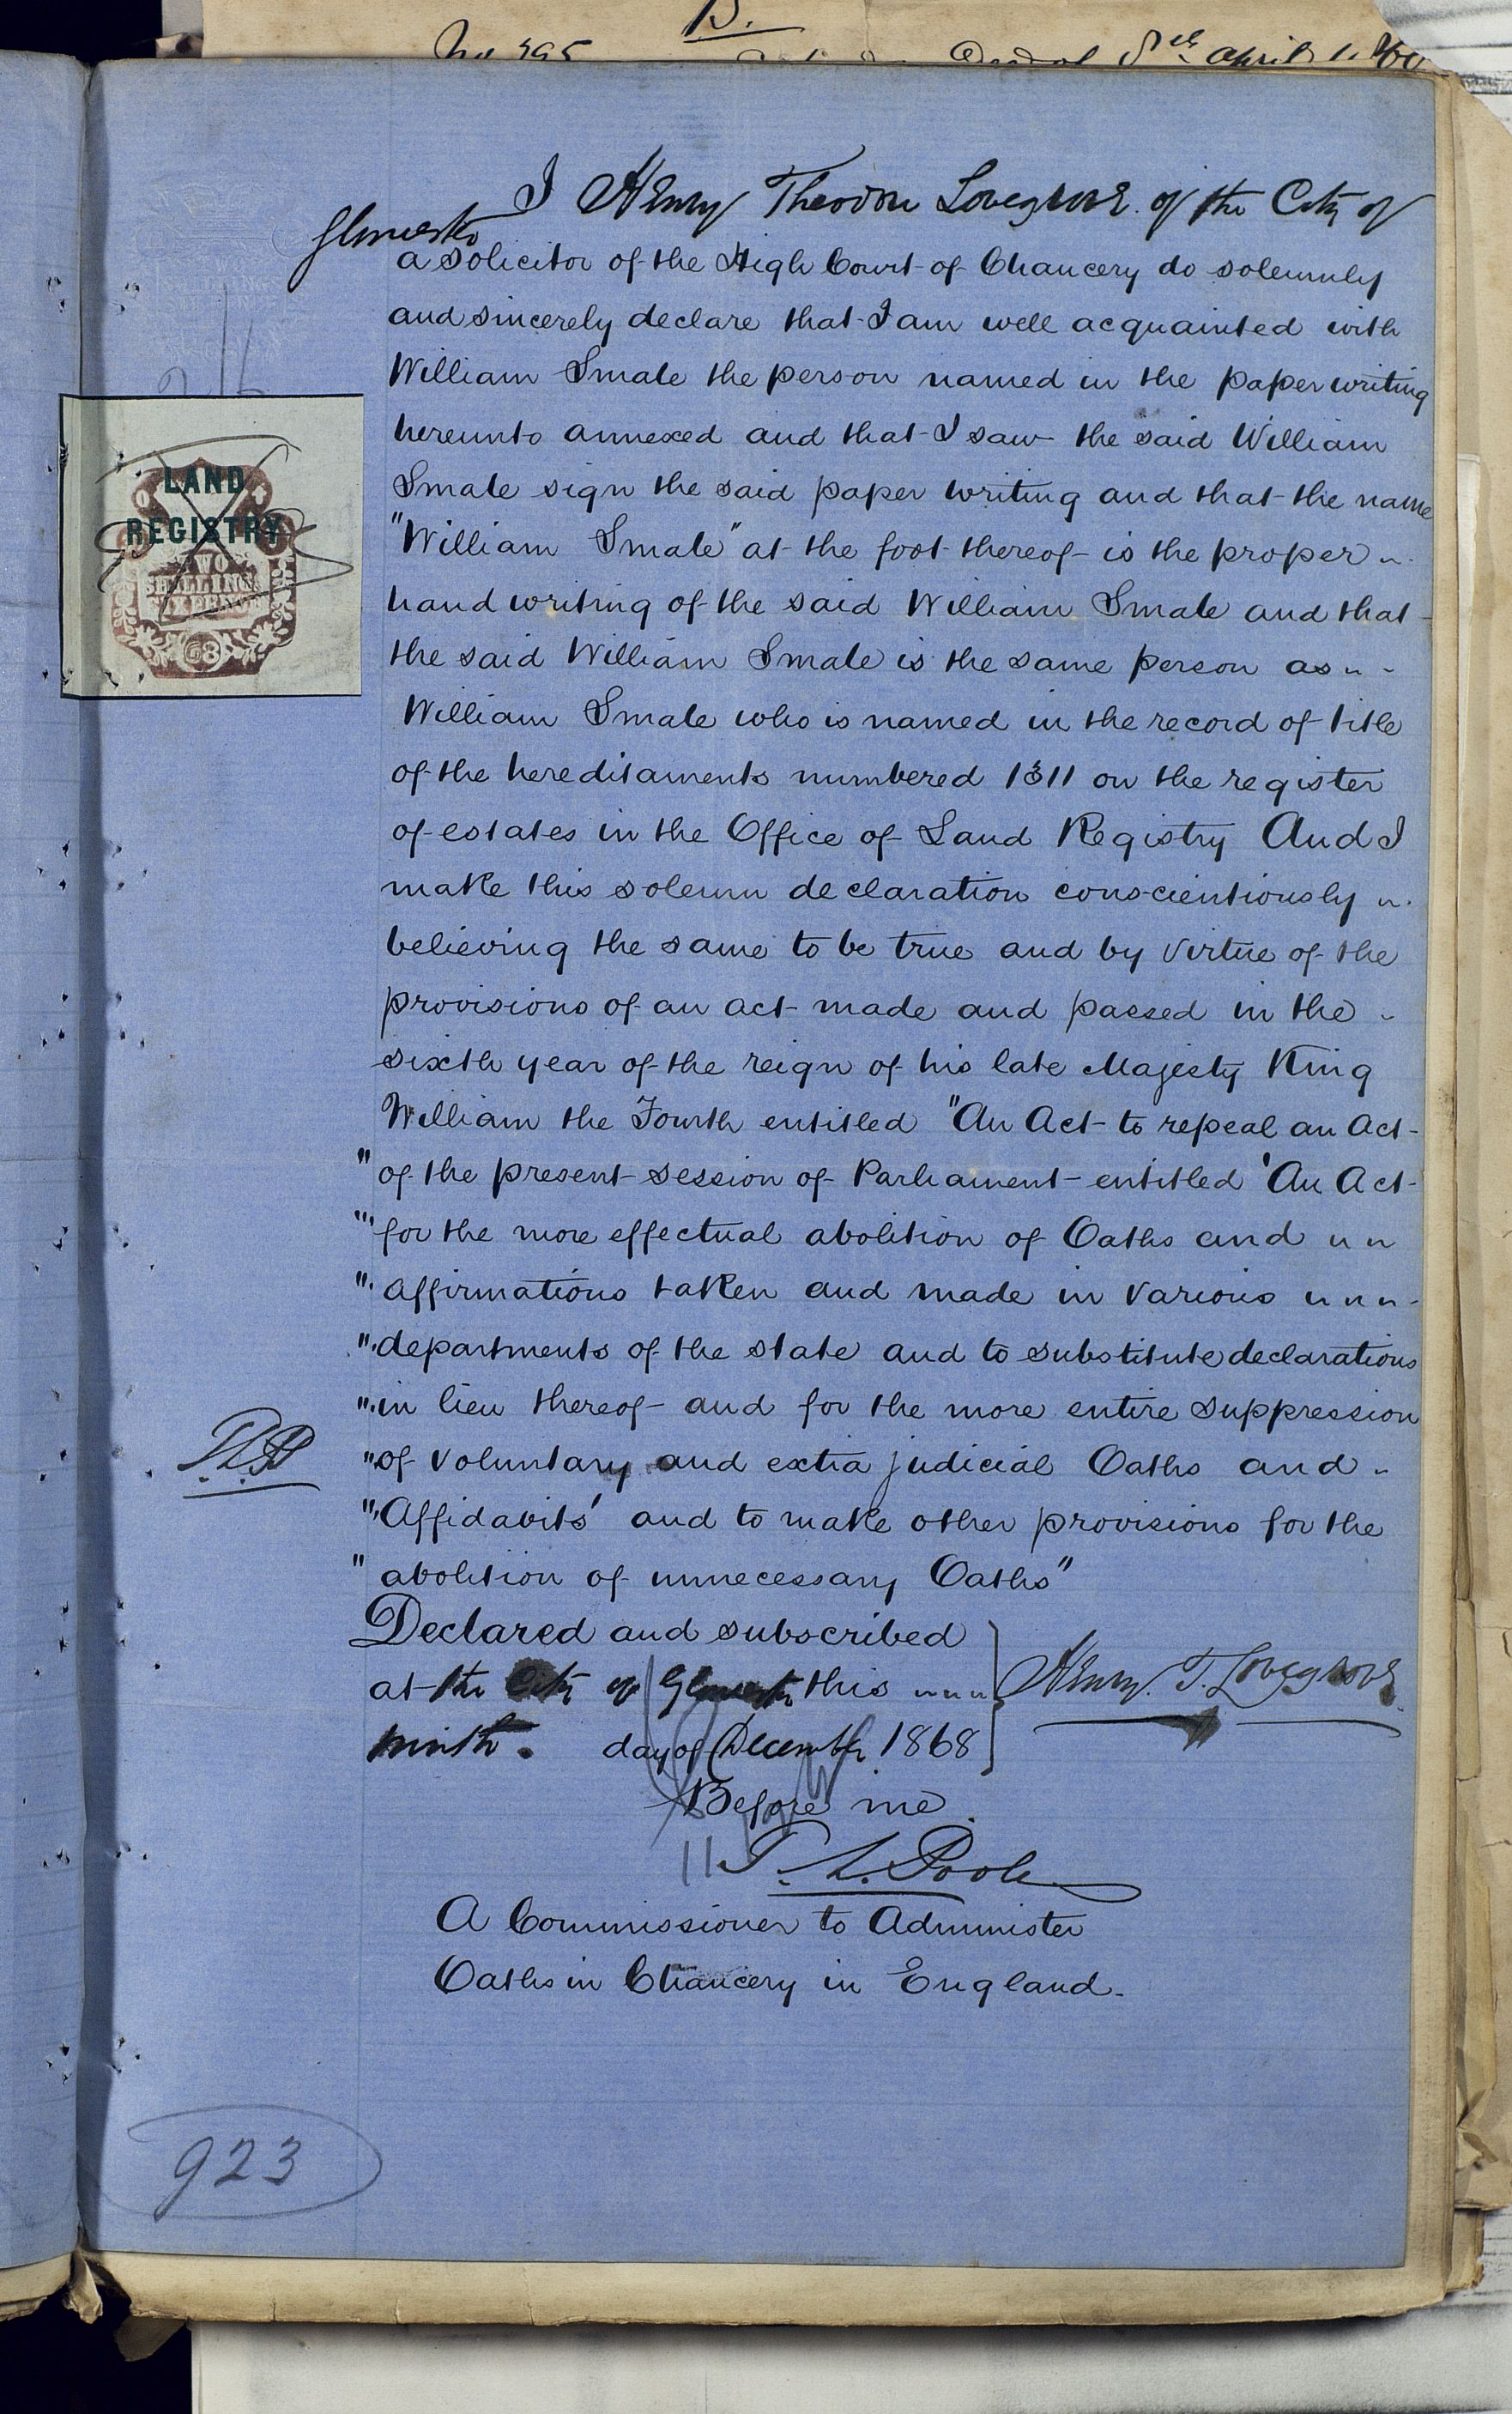 B.
No 395 Deed of 8th April 1
I Henry Theodore Lovegrove of the City of
Gloucester
a solicitor of the High Court of Chancery do solemnly
and sincerely declare that I am well acquainted with
William Smale the person named in the paper writing
hereunto annexed and that I saw the said William
Smale sign the said paper writing and that the name
"William Smale" at the foot thereof is the proper
hand writing of the said William Smale and that
the said William Smale is the same person as
William Smale who is named in the record of title
of the hereditaments numbered 1311 on the register
of estates in the Office of Land Registry And I
make this solemn declaration conscientiously
believing the same to be true and by virtue of the
provisions of an act made and passed in the
sixth year of the reign of his late Majesty King
William the Fourth entitled "An Act to repeal an Act
" of the present session of Parliament entitled 'An Act
"' for the more effectual abolition of Oaths and
"' affirmations taken and made in various
"' departments of the state and to substitute declarations
"' in lieu thereof and for the more entire suppression
"' of voluntary and extra judicial Oaths and
"' Affidavits' and to make other provisions for the
" abolition of unnecessary Oaths"
Declared and subscribed
at the City of Gloucester this
ninth day of December 1868
Henry. T. Lovegrove
Before me
T. L. Poole
A Commissioner to Administer
Oaths in Chancery in England.
LAND
REGISTRY
TWO
SHILLINGS
SIXPENCE
68
T.L.P
923